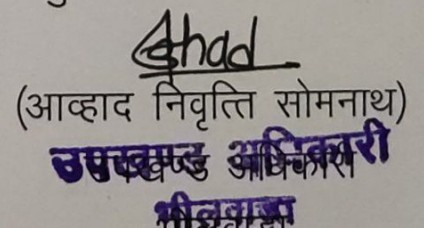 Ahad
(आव्हाद निवृत्ति सोमनाथ)
उपखण्ड अधिकारी
भीलवाड़ा